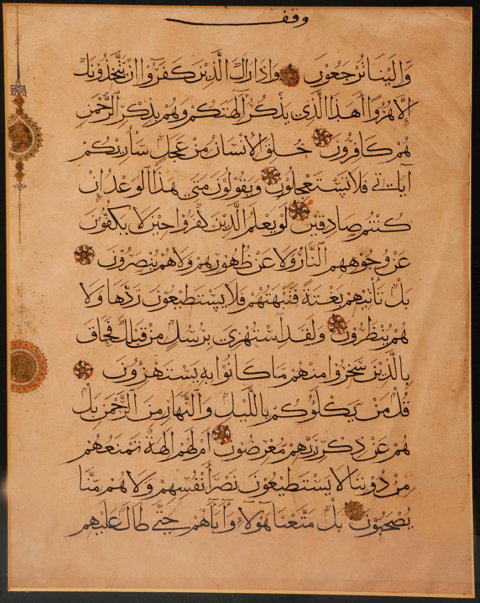 وقف
وَإِلَيْنَا تُرْجَعُونَ وَإِذَا رَآكَ الَّذِينَ كَفَرُوا إِنْ يَتَّخِذُونَكَ
إِلَّا هُزُوًا أَهَذَا الَّذِي يَذْكُرُ آلِهَتَكُمْ وَهُمْ بِذِكْرِ الرَّحْمَنِ
هُمْ كَافِرُونَ خُلِقَ الْإِنْسَانُ مِنْ عَجَلٍ سَأُرِيكُمْ
آيَاتِي فَلَا تَسْتَعْجِلُونِ وَيَقُولُونَ مَتَى هَذَا الْوَعْدُ إِنْ
كُنْتُمْ صَادِقِينَ لَوْ يَعْلَمُ الَّذِينَ كَفَرُوا حِينَ لَا يَكُفُّونَ
عَنْ وُجُوهِهِمُ النَّارَ وَلَا عَنْ ظُهُورِهِمْ وَلَا هُمْ يُنْصَرُونَ
بَلْ تَأْتِيهِمْ بَغْتَةً فَتَبْهَتُهُمْ فَلَا يَسْتَطِيعُونَ رَدَّهَا وَلَا
هُمْ يُنْظَرُونَ وَلَقَدِ اسْتُهْزِئَ بِرُسُلٍ مِنْ قَبْلِكَ فَحَاقَ
بِالَّذِينَ سَخِرُوا مِنْهُمْ مَا كَانُوا بِهِ يَسْتَهْزِءُونَ
قُلْ مَنْ يَكْلَؤُكُمْ بِاللَّيْلِ وَالنَّهَارِ مِنَ الرَّحْمَنِ بَلْ
هُمْ عَنْ ذِكْرِ رَبِّهِمْ مُعْرِضُونَ أَمْ لَهُمْ آلِهَةٌ تَمْنَعُهُمْ
مِنْ دُونِنَا لَا يَسْتَطِيعُونَ نَصْرَ أَنْفُسِهِمْ وَلَا هُمْ مِنَّا
يُصْحَبُونَ بَلْ مَتَّعْنَا هَؤُلَاءِ وَآبَاءَهُمْ حَتَّى طَالَ عَلَيْهِمُ